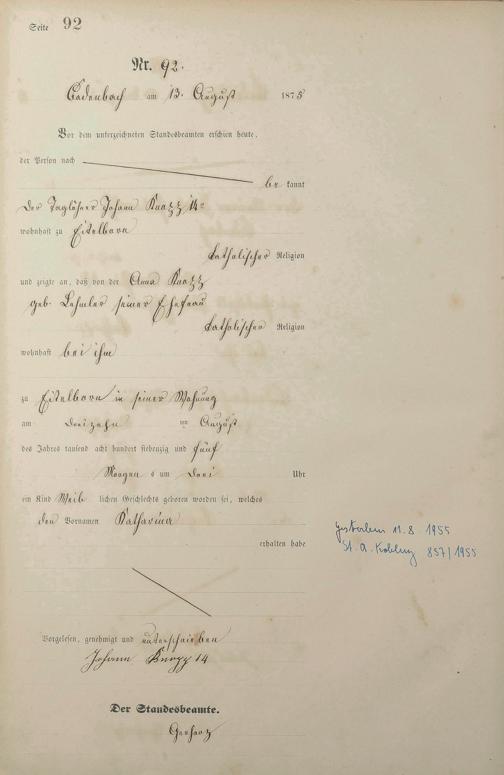 Seite 92
Nr. 92.
Cadenbach am 13. August 1875
Vor dem unterzeichneten Standesbeamten erschien heute,
der Person nach
be kannt
der Taglöhner Johann Knopp 14
wohnhaft zu Eitelborn
katholischer Religion
und zeigte an, daß von der Anna Knopp
geb. Lehmler seiner Ehefrau
katholischer Religion
wohnhaft bei ihm
zu Eitelborn in seiner Wohnung
am dreizehn ten August
des Jahres tausend acht hundert siebenzig und fünf
Morgen s um drei Uhr
ein Kind Weib lichen Geschlechts geboren worden sei, welches
den Vornamen Katharina
erhalten habe
gestorben 11.8. 1955
St. A. Koblenz 857/1955
Vorgelesen, genehmigt und unterschrieben
Johann Knopp 14
Der Standesbeamte.
Gerharz